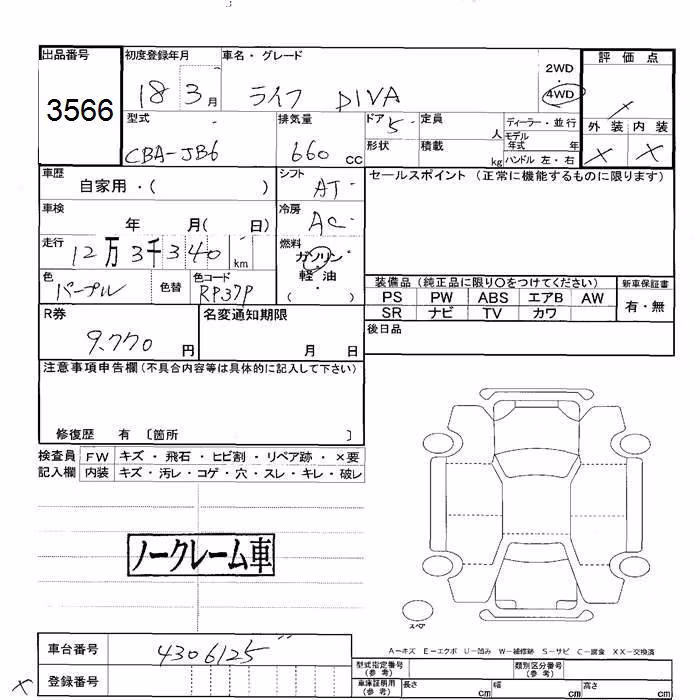 出品番号 初度登録年月 車名・グレード 2WD 評価点
3566 18 3月 ライフ DIVA ・ 4WD ×
型式 排気量 ドア 5 定員 人 ディーラー・並行 外装 内装
CBA-JB6 660 cc 形状 積載 kg モデル年式 年 × ×
ハンドル 左・右
車歴 自家用・( ) シフト AT セールスポイント (正常に機能するものに限ります)
車検 年 月( 日) 冷房 AC
走行 12万3千340 km 燃料 ガソリン・軽油 ( )
色 パープル 色替 色コード RP37P
装備品 (純正品に限り〇をつけてください) 新車保証書
PS PW ABS エアB AW 有・無
SR ナビ TV カワ
R券 9,770 円 名変通知期限 月 日 後日品
注意事項申告欄 (不具合内容等は具体的に記入して下さい)
修復歴 有 〔箇所 〕
検査員 FW キズ・飛石・ヒビ割・リペア跡・×要
記入欄 内装 キズ・汚レ・コゲ・穴・スレ・キレ・破レ
ノークレーム車
スペア
A-キズ E-エクボ U-凹み W-補修跡 S-サビ C-腐食 XX-交換済
車台番号 4306125
登録番号
×
型式指定番号 (参考) 類別区分番号 (参考)
車庫証明用 (参考) 長さ cm 幅 cm 高さ cm